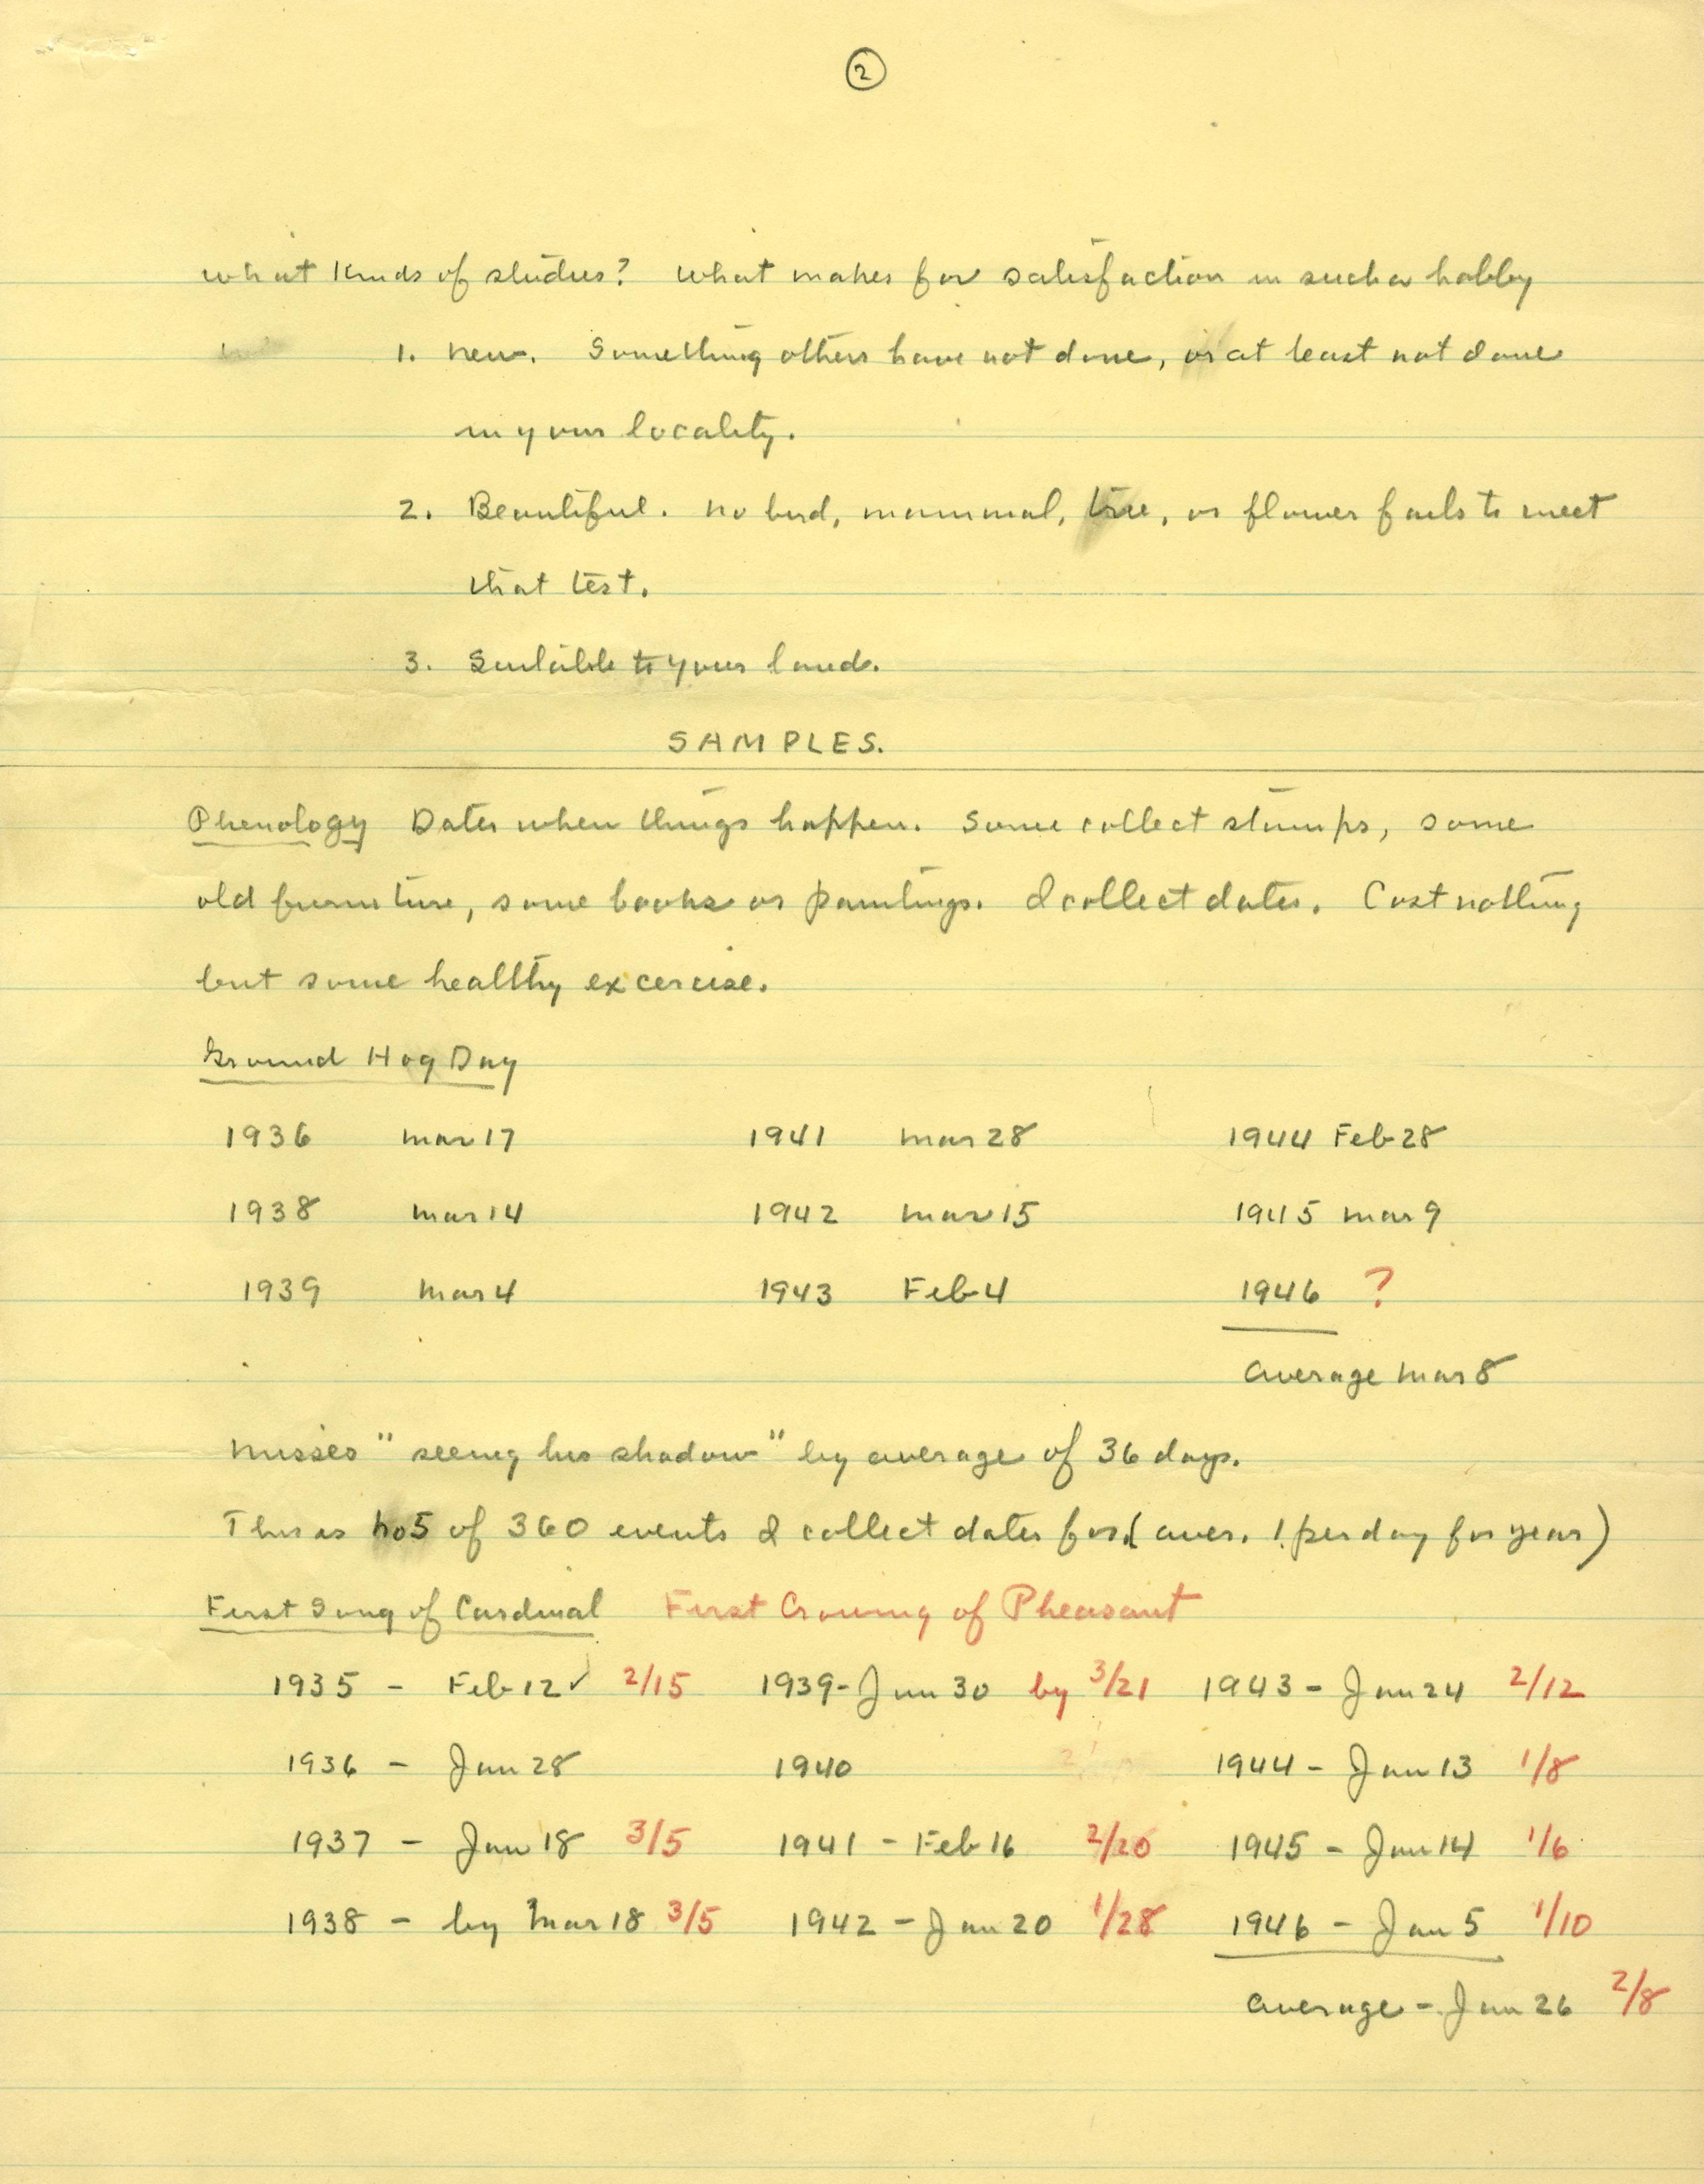 2
What kinds of studies? What makes for satisfaction in such a hobby
1. New. Something others have not done, or at least not done
in your locality.
2. Beautiful. No bird, mammal, tree, or flower fails to meet
that test.
3. Suitable to your land.
SAMPLES.
Phenology Dates when things happen. Some collect stamps, some
old furniture, some books or paintings. I collect dates. Cost nothing
but some healthy excercise.
Ground Hog Day
1936 Mar 17 1941 Mar 28 1944 Feb 28
1938 Mar 14 1942 Mar 15 1945 Mar 9
1939 Mar 4 1943 Feb 4 1946 ?
Average Mar 8
Misses "seeing his shadow" by average of 36 days.
This is No 5 of 360 events I collect dates for (aver. 1 per day for year)
First Song of Cardinal First Crowing of Pheasant
1935 - Feb 12 ✓ 2/15 1939 - Jan 30 by 3/21 1943 - Jan 24 2/12
1936 - Jan 28 1940 1944 - Jan 13 1/8
1937 - Jan 18 3/5 1941 - Feb 16 2/20 1945 - Jan 14 1/6
1938 - by Mar 18 3/5 1942 - Jan 20 1/28 1946 - Jan 5 1/10
Average - Jan 26 2/8